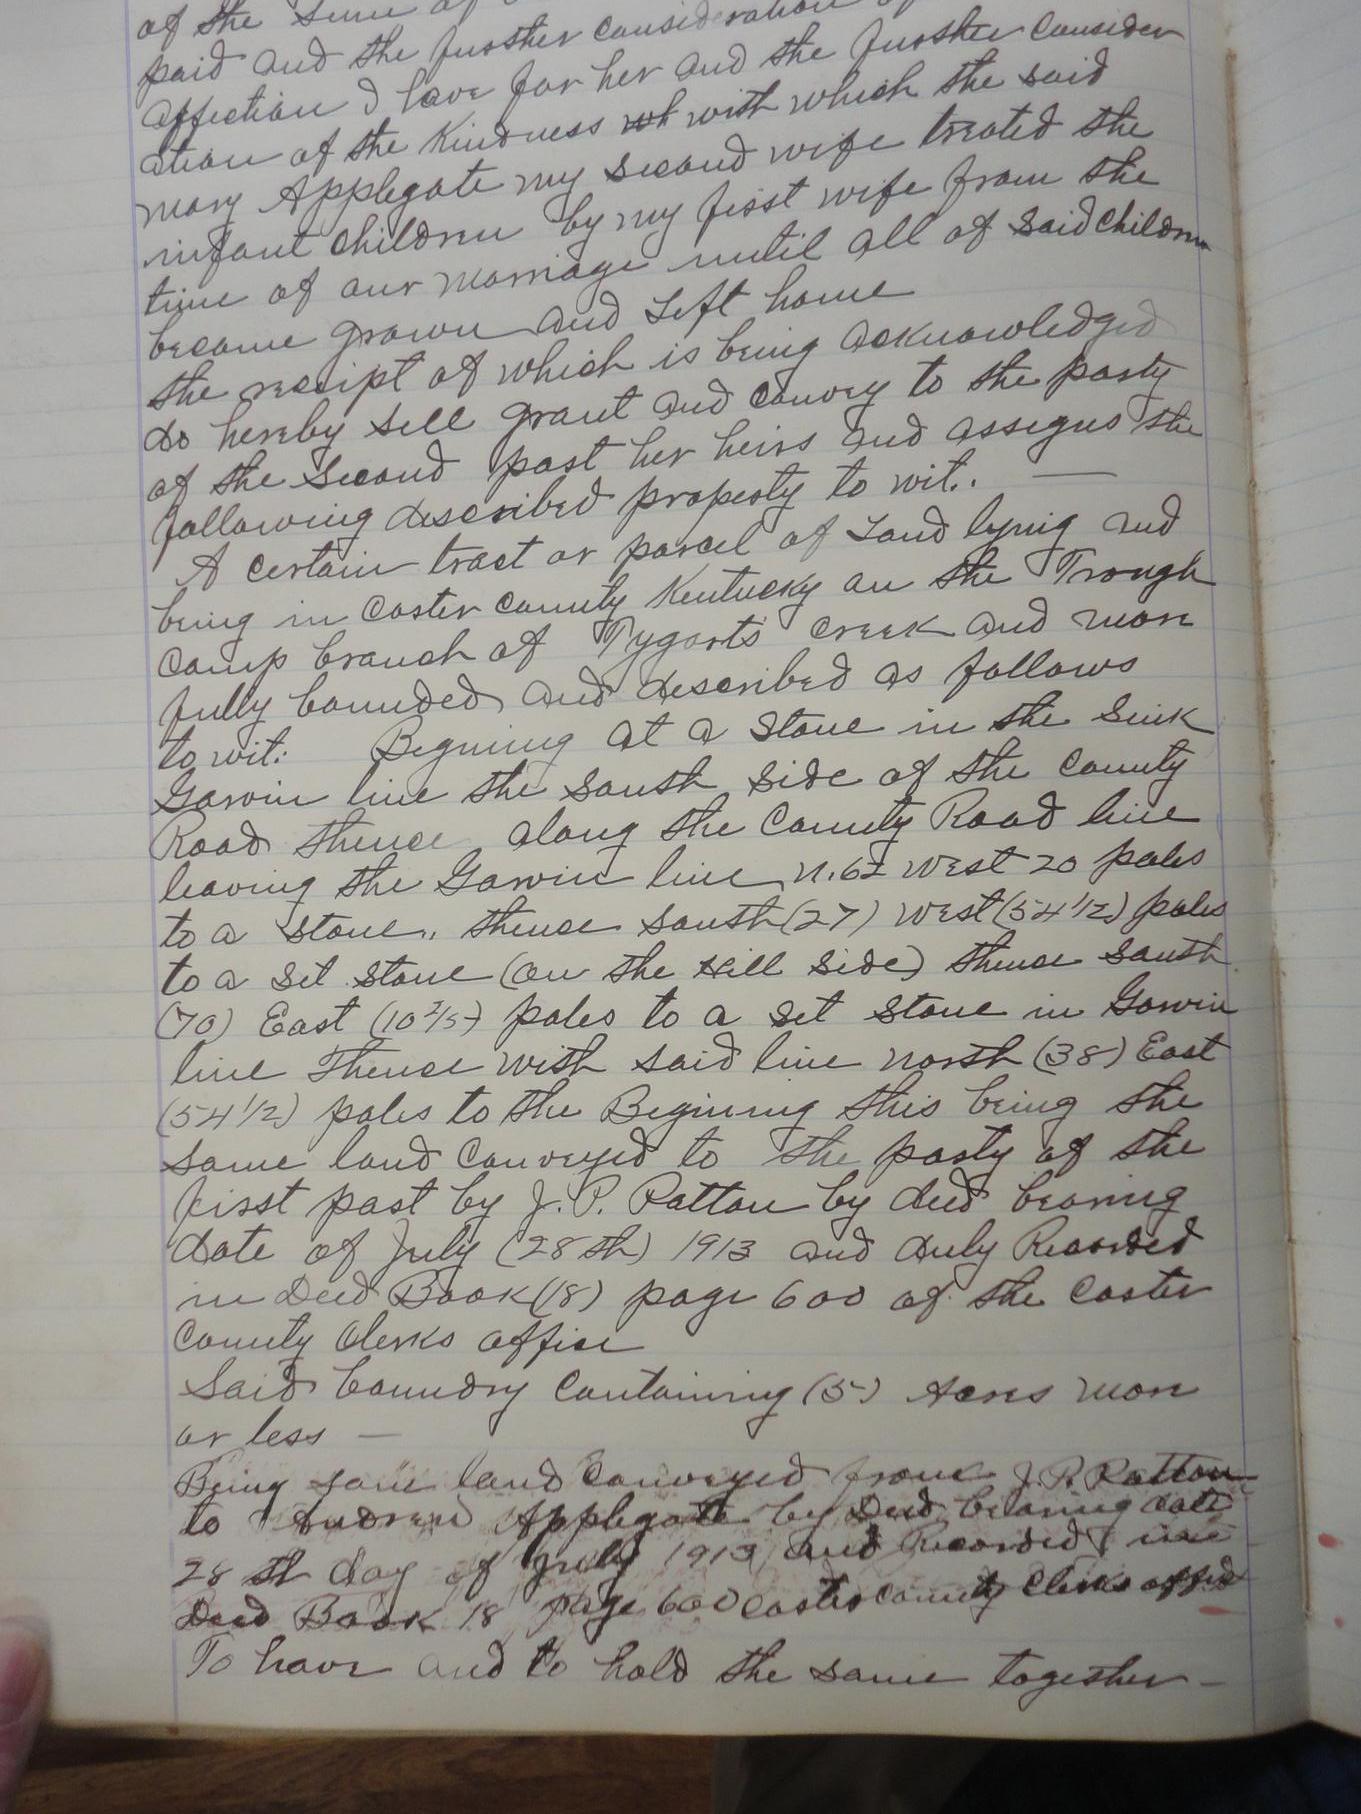 of the sum of
paid and the further consideration of
affection I have for her and the further consider
ation of the Kindness wh with which the said
Mary Applegate my second wife treated the
infant children by my first wife from the
time of our marriage until all of said children
became grown and Left home
the receipt of which is being acknowledged
do hereby sell grant and convey to the party
of the Second part her heirs and assigns the
following described property to wit..
A certain tract or parcel of Land lying and
being in Carter County Kentucky on the Trough
Camp branch of Tygarts creek and more
fully bounded and described as follows
to wit: Begining at a Stone in the Sink
Garvin line the South Side of the County
Road thence along the County Road line
leaving the Garvin line N. 62 West 20 poles
to a stone, thence south (27) West (54 1/2) poles
to a set stone (on the Hill side) thence south
(70) East (10 2/5) poles to a set stone in Garvin
line Thence with said line North (38) East
(54 1/2) poles to the Begining this being the
same land conveyed to the party of the
first part by J. P. Patton by deed bearing
date of July (28th) 1913 and duly Recorded
in Deed Book (18) page 600 of the Carter
County Clerks office
Said boundry Containing (5) Acres more
or less
Being same land Conveyed from J. P. Patton
to Andrew Applegate by Deed bearing date
28th day of July 1913 and Recorded in
Deed Book 18 page 600 Carter County Clerks office
To have and to hold the same together